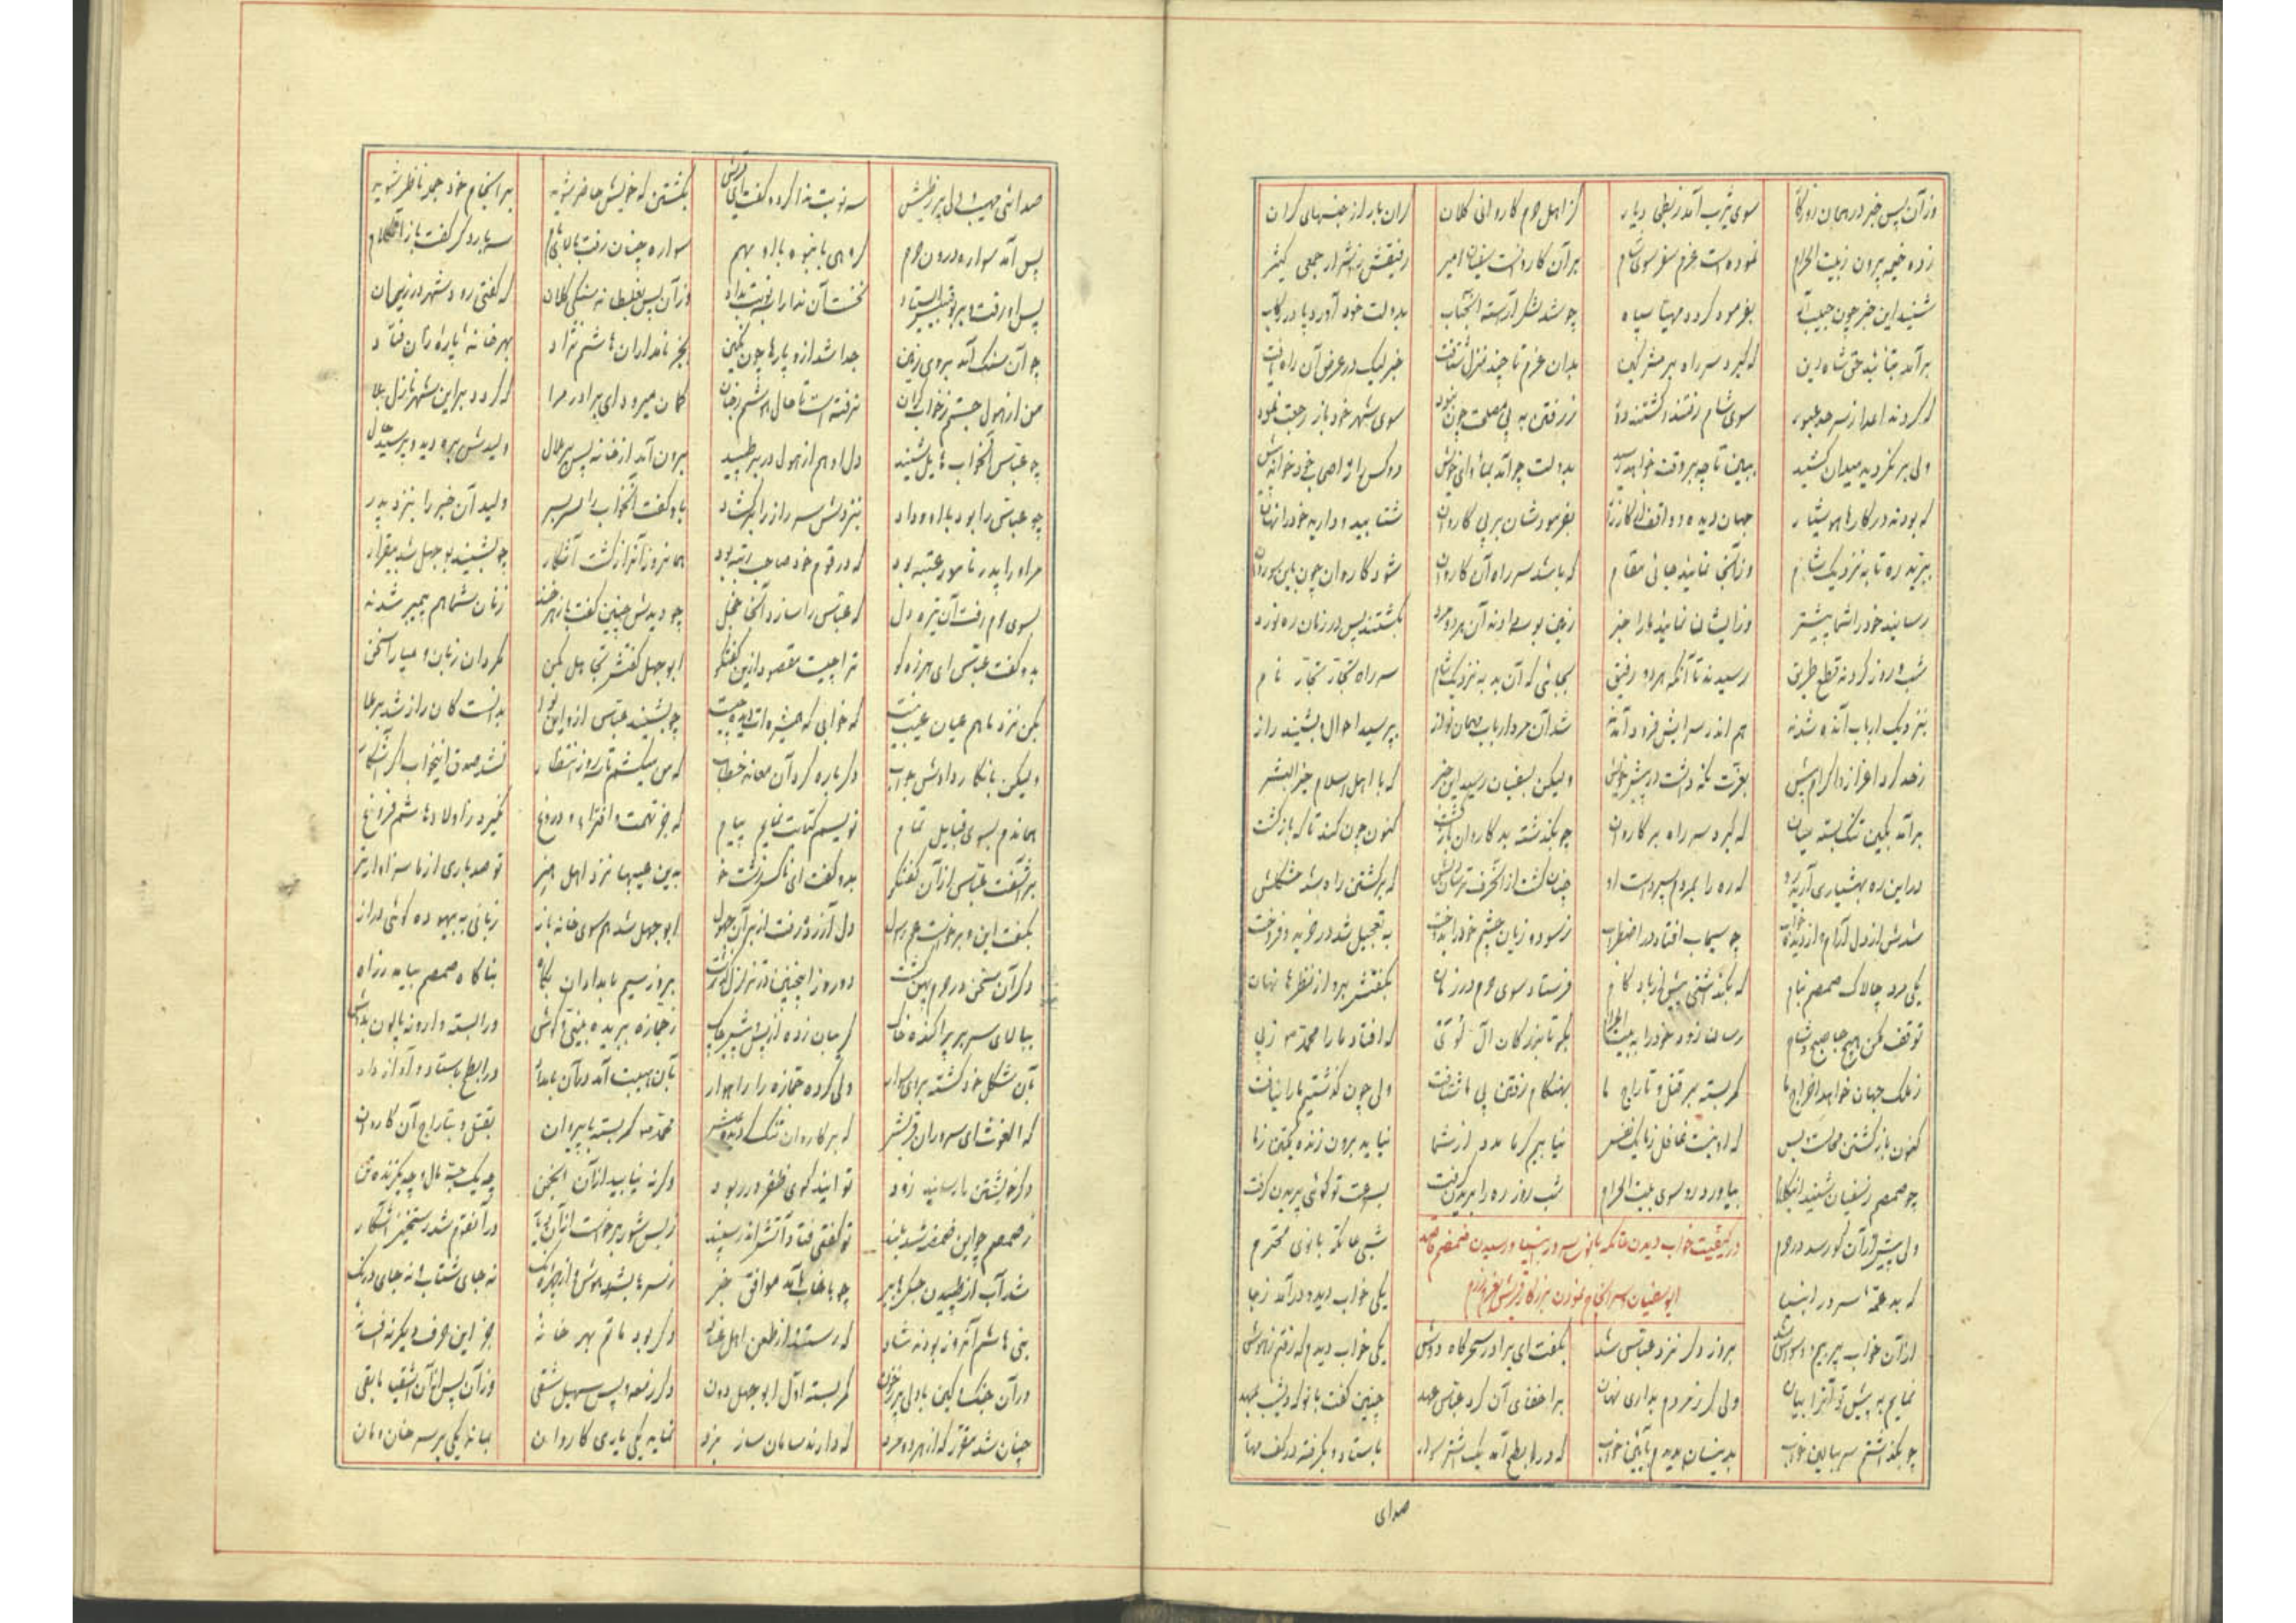 وزآن پس خبر در همان روزگار سوی یثرب آمد ز بطحی دیار کز اهل حرم کاروانی کلان گران بار از جنسهای گران
زده خیمه بیرون ز بیت الحرام نموده است عزم سفر سوی شام بر آن کاروانست سفیان امیر رفیقش ز اشرار جمعی کثیر
شنید این خبر چون حبیب اله بفرمود گردد مهیا سپاه چو شد لشکر آراسته آنجناب بدولت خود آورد پا در رکاب
برآمد بتائید حق شاه دین که گیرد سر راه بر مشرکین بدان عزم تا چند منزل شتافت خبر لیک در عرض آن راه یافت
که کردند اعدا از سرحد عبور سوی شام رفتند و گشتند دور ز رفتن به پی مصلحت چون نبود سوی شهر خود باز رجعت نمود
ولی بر نگردید میدان کشید ببیند تا چه بر وقت خواهد رسید بدولت چو آمد بمأوای خویش دو کس را ز اصحاب خود خواند پیش
که بودند در کارها هوشیار جهان دیده و واقف از کارزار بفرمودشان بر پی کاروان شتابید و دارید خود را نهان
بپرید ره تا به نزدیک شام وز آنجا نمایند جائی مقام که باشد سر راه آن کاروان شود کاروان چون باین سو روان
رسانید خود را شما پیشتر وز ایشان نمائید ما را خبر زمین بوسه دادند آن هر دو مرد گشتند پس در زمان ره نورد
شب و روز کردند قطع طریق رسیدند تا آنکه هر دو رفیق بجائی که آن بد به نزدیک شام سر راه تجار نام
بنزدیک ارباب آنده شدند هم اندر سرایش فرود آمدند شد آن مرد ارباب مهمان نواز بپرسید احوال بشنید راز
زحد کرد اعزاز و اکرام بیش بعزت نگه داشت در پیش خویش ولیکن بسفیان رسید این خبر که با اهل اسلام خیر البشر
برآمد بکین تنگ بسته میان که گیرد سر راه بر کاروان چو بگذشته بد کاروان کنون چون کند تا که بازگشت
در این ره بهشیاری که ره را بمردم سپرده است او چنان گشت از آنحرف ترسان دلش که برگشتن راه شد مشکلش
شدش از دل آرام و از دیده خواب چو سیماب افتاد در اضطراب ز سود و زیان چشم خود را به تعجیل شد در خرید و فروخت
یکی مرد چالاک ضمضم بنام که بگذاشتی پیش از باد گام فرستاد سوی حرم در زمان بگفتش برو از نظرها نهان
توقف مکن هیچ جا صبح و شام رسان زود خود را به بیت الحرام بگو تا بزرگان آل که افتاد ما را محمد ز پی
ز ملک جهان خواهد اخراج ما کمر بسته بر قتل و تاراج ما بهنگام رفتن پی ما شتافت ولی چون گذشتیم ما را نیافت
کنون بازگشتن محالست پس که او نیست غافل ز ما یک نفس نیاید گر ما مدد از شما نیاید برون زنده یکتن ز ما
چو ضمضم ز سفیان شنید این کلام بیاورد رو سوی بیت الحرام شب و روز ره را بریدن گرفت بسرعت تو گوئی پریدن گرفت
ولی پیش از آن کو رسد در حرم شبی عاتکه بانوی محترم
که بد عمه سرور انبیا یکی خواب دیده درآمد ز جا
در کیفیت خواب دیدن عاتکه بانوی سرور انبیا و رسیدن ضمضم قاصد
ابوسفیان سرانجام نمودن بزرگان قریش بعزم رزم
از آن خواب پر بیم و بروز دگر نزد عباس شد بگفت ای برادر سحرگاه دوش یکی خواب دیدم که رفتم ز هوش
نمایم به پیش تو آنرا بیان ولی گر ز مردم بداری نهان بر اخفای آن کرد عباس عهد چنین گفت بانو که دیشب بمهد
چو بگذاشتم سر ببالین خواب بدینسان بدیدم که در ابطح آمد یک اشتر سوار باستاد و بگرفته در کف مهار
صدای
صدائی مهیب سه نوبت ندا کرد و گفت ای قریش بکشتن گه خویش حاضر شوید سرانجام خود جمله ناظر شوید
پس آمد سواره درون حرم گروهی بانبوه با او بهم سواره چنان رفت بالای بام سه بار دگر گفت باز آن کلام
پس او رفت بر بوقبیس ایستاد نخست آن ندا را سه نوبت بداد وز آن پس بغلطاند سنگی کلان که گفتی رود شهر در زیر آن
چو آن سنگ آمد بروی زمین جدا شد ازو پارها چون نگین بجز نامداران هاشم نژاد بهر خانه پاره ز آن فتاد
من از هول جستم ز خواب گران نرفته است تا حال هوشم ز جان گمان میرود ای برادر مرا که گردد بر این شهر نازل بلا
چو عباس آنخواب هایل شنید دل او هم از هول در بر طپید برون آمد از خانه پس بر حال ولیدش بره دید و پرسید حال
چو عباس را بود با او وداد بنزدش سر راز را برگشاد باو گفت آنخواب را سر بسر ولید آن خبر را بنزد پدر
مر او را پدر نامور عتبه بود که در قوم خود صاحب رتبه بود همانروز آن راز گشت آشکار چو بشنید بوجهل شد بیقرار
بسوی حرم رفت آن تیره دل که عباس را سازد آنجا خجل چو دیدش چنین گفت باز زنان شما هم پیمبر شدند
بدو گفت عباس ای هرزه گو ترا چیست مقصود ازین گفتگو ابوجهل گفتش تجاهل مکن مگردان زبان و میارا سخن
مکن نزد ما هم عیان عیب نیست که خوابی که همشیره ات دیده چیست چو بشنید عباس از او این ندا بدانست کان راز شد برملا
ولیکن بانکار دادش جواب دگر باره کرد آن خطاب که من میکشم تا سه روز انتظار نشد صدق اینخواب اگر آشکار
هماندم بسوی قبایل تمام نویسم کتابت نمایم پیام که جز تهمت و افترا و دروغ نگیرد ز اولاد هاشم فروغ
برآشفت عباس از آن گفتگو بدو گفت ای ناکس زشت خو به این عیبها نزد اهل هنر تو صد باری از ما سزاوارتر
بگفت این و برخواست عم رسول دل آزرده رفت از بر آن جهول ابوجهل شد هم سوی خانه باز زبانی به بیهوده گوئی دراز
دگر آن سخن در حرم پهن گشت دو روز اینچنین در تزلزل گذشت بروز سیم بامدادان پگاه بناگاه ضمضم بیامد ز راه
ببالای سر بر پراکنده خاک گریبان زده از پس و پیش چاک ز جمازه ببریده بینی و گوش
بآن شکل خود گشته بروی سوار ولی کرده جمازه را راهوار بآن هیبت آمد در آن در ابطح باستاد و آواز داد
که الغوث ای سروران قریش که بر کاروان تنگ محمد کمر بسته با پیروان بقتل و بتاراج آن کاروان
دگر خویشتن را رسانید زود توانید گوی ظفر در ربود وگرنه نیابید از آن انجمن چه یک حبه مال و چه یکزنده تن
ز ضمضم چو این قصه شد بلند تو گفتی فتاد آتش اندر سپند ز بس شور برخواست در آنقوم شد رستخیز آشکار
شد آب از طپیدن جگرها ببر چو با خواب آمد موافق خبر ز سرها بشد هوش و از چهره رنگ نه جای شتاب و نه جای درنگ
بنی هاشم آنروز بودند شاد که رستند از طعن اهل عناد دگر بود ماتم بهر خانهٔ جز این حرف دیگر نه افسانهٔ
در آن جنگ و کین با دل پر ز خون کمر بسته اول ابوجهل دون دگر زمعه و پس سهیل شقی وز آن پس از آن اشقیا مابقی
چنان شد مقرر که از هر دو مرد که دارند سامان ساز نبرد نماید یکی یاری کاروان بماند یکی بر سر خان و مان